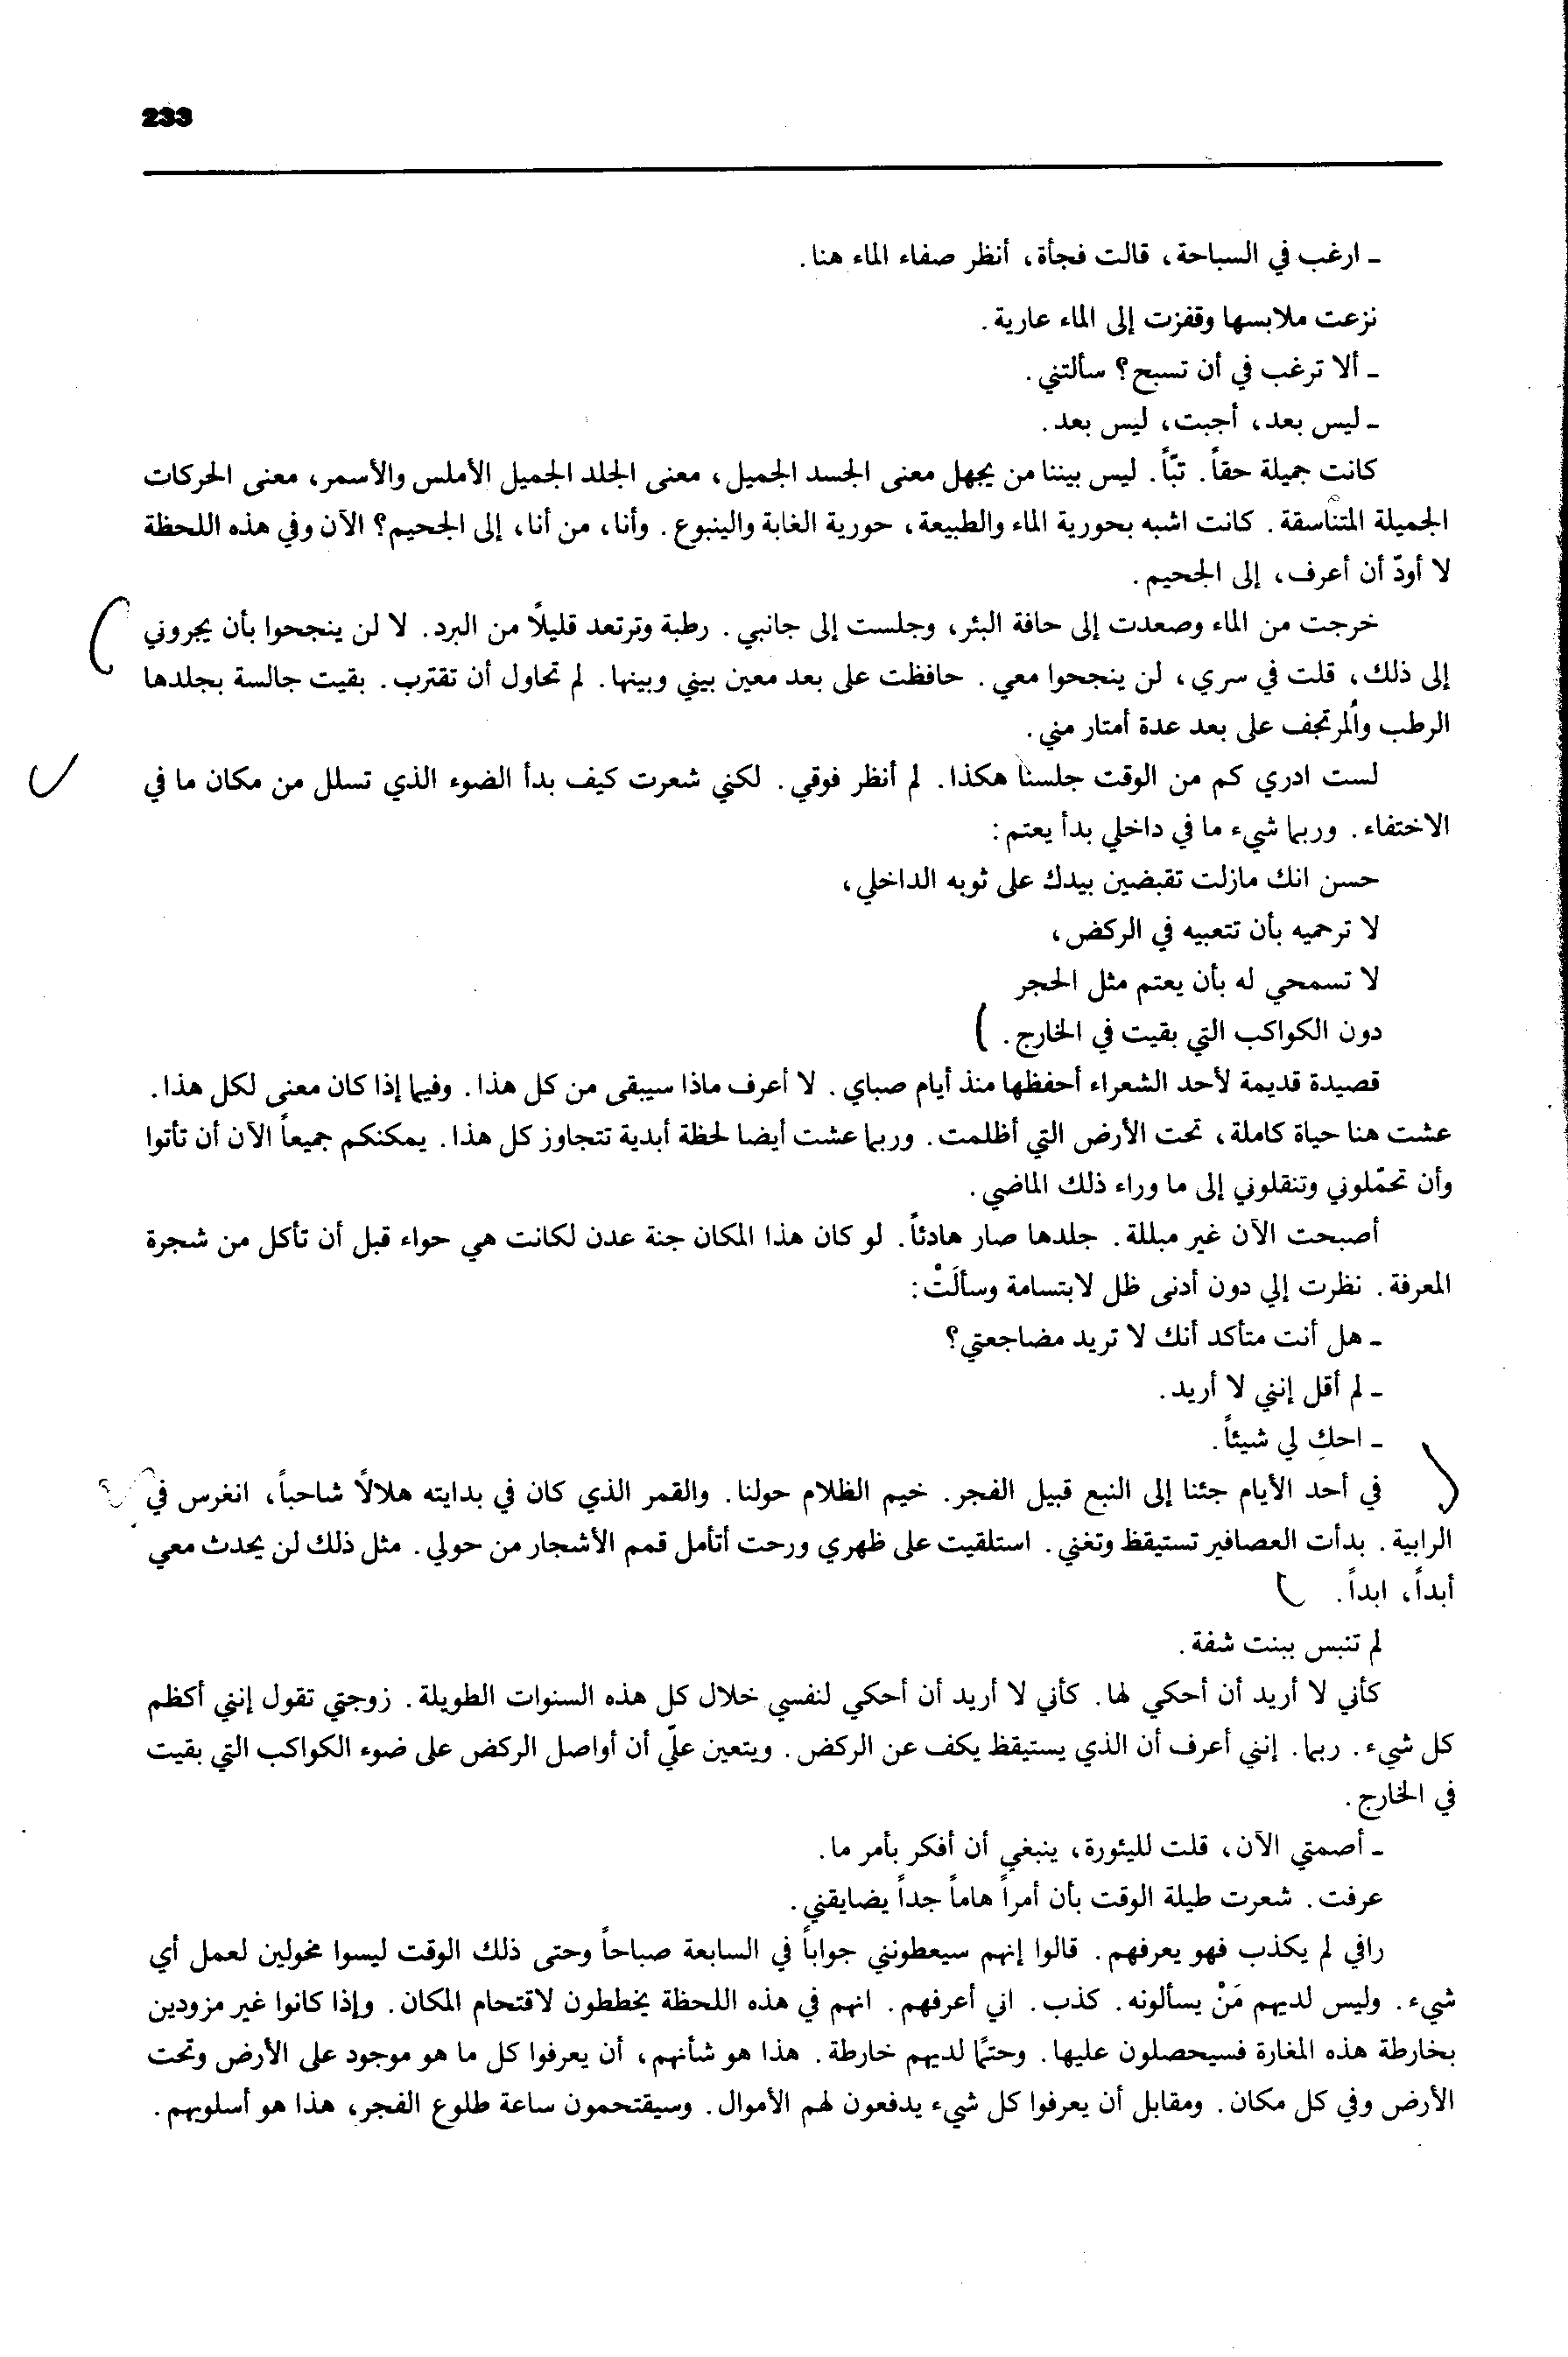 233
ـ ارغب في السباحة، قالت فجأة، أنظر صفاء الماء هنا.
نزعت ملابسها وقفزت إلى الماء عارية.
ـ ألا ترغب في أن تسبح؟ سألتني.
ـ ليس بعد، أجبت، ليس بعد.
كانت جميلة حقاً. تبّاً. ليس بيننا من يجهل معنى الجسد الجميل، معنى الجلد الجميل الأملس والأسمر، معنى الحركات
الجميلة المتناسقة. كانت اشبه بحورية الماء والطبيعة، حورية الغابة والينبوع. وأنا، من أنا، إلى الجحيم؟ الآن وفي هذه اللحظة
لا أودّ أن أعرف، إلى الجحيم.
خرجت من الماء وصعدت إلى حافة البئر، وجلست إلى جانبي. رطبة وترتعد قليلاً من البرد. لا لن ينجحوا بأن يجروني
إلى ذلك، قلت في سري، لن ينجحوا معي. حافظت على بعد معين بيني وبينها. لم تحاول أن تقترب. بقيت جالسة بجلدها
الرطب والمُرتجف على بعد عدة أمتار مني.
لست ادري كم من الوقت جلسنا هكذا. لم أنظر فوقي. لكني شعرت كيف بدأ الضوء الذي تسلل من مكان ما في
الاختفاء. وربما شيء ما في داخلي بدأ يعتم:
حسن انك مازلت تقبضين بيدك على ثوبه الداخلي،
لا ترحميه بأن تتعبيه في الركض،
لا تسمحي له بأن يعتم مثل الحجر
دون الكواكب التي بقيت في الخارج.
قصيدة قديمة لأحد الشعراء أحفظها منذ أيام صباي. لا أعرف ماذا سيبقى من كل هذا. وفيما إذا كان معنى لكل هذا.
عشت هنا حياة كاملة، تحت الأرض التي أظلمت. وربما عشت أيضا لحظة أبدية تتجاوز كل هذا. يمكنكم جميعاً الآن أن تأتوا
وأن تحمّلوني وتنقلوني إلى ما وراء ذلك الماضي.
أصبحت الآن غير مبللة. جلدها صار هادئاً. لو كان هذا المكان جنة عدن لكانت هي حواء قبل أن تأكل من شجرة
المعرفة. نظرت إلي دون أدنى ظل لابتسامة وسألَتْ:
ـ هل أنت متأكد أنك لا تريد مضاجعتي؟
ـ لم أقل إنني لا أريد.
ـ احكِ لي شيئاً.
في أحد الأيام جئنا إلى النبع قبيل الفجر. خيم الظلام حولنا. والقمر الذي كان في بدايته هلالاً شاحباً، انغرس في
الرابية. بدأت العصافير تستيقظ وتغني. استلقيت على ظهري ورحت أتأمل قمم الأشجار من حولي. مثل ذلك لن يحدث معي
أبداً، ابداً.
لم تنبس ببنت شفة.
كأني لا أريد أن أحكي لها. كأني لا أريد أن أحكي لنفسي خلال كل هذه السنوات الطويلة. زوجتي تقول إنني أكظم
كل شيء. ربما. إنني أعرف أن الذي يستيقظ يكف عن الركض. ويتعين عليّ أن أواصل الركض على ضوء الكواكب التي بقيت
في الخارج.
ـ أصمتي الآن، قلت لليئورة، ينبغي أن أفكر بأمر ما.
عرفت. شعرت طيلة الوقت بأن أمراً هاماً جداً يضايقني.
رافي لم يكذب فهو يعرفهم. قالوا إنهم سيعطونني جواباً في السابعة صباحاً وحتى ذلك الوقت ليسوا مخولين لعمل أي
شيء. وليس لديهم مَنْ يسألونه. كذب. اني أعرفهم. انهم في هذه اللحظة يخططون لاقتحام المكان. وإذا كانوا غير مزودين
بخارطة هذه المغارة فسيحصلون عليها. وحتمًا لديهم خارطة. هذا هو شأنهم، أن يعرفوا كل ما هو موجود على الأرض وتحت
الأرض وفي كل مكان. ومقابل أن يعرفوا كل شيء يدفعون لهم الأموال. وسيقتحمون ساعة طلوع الفجر، هذا هو أسلوبهم.